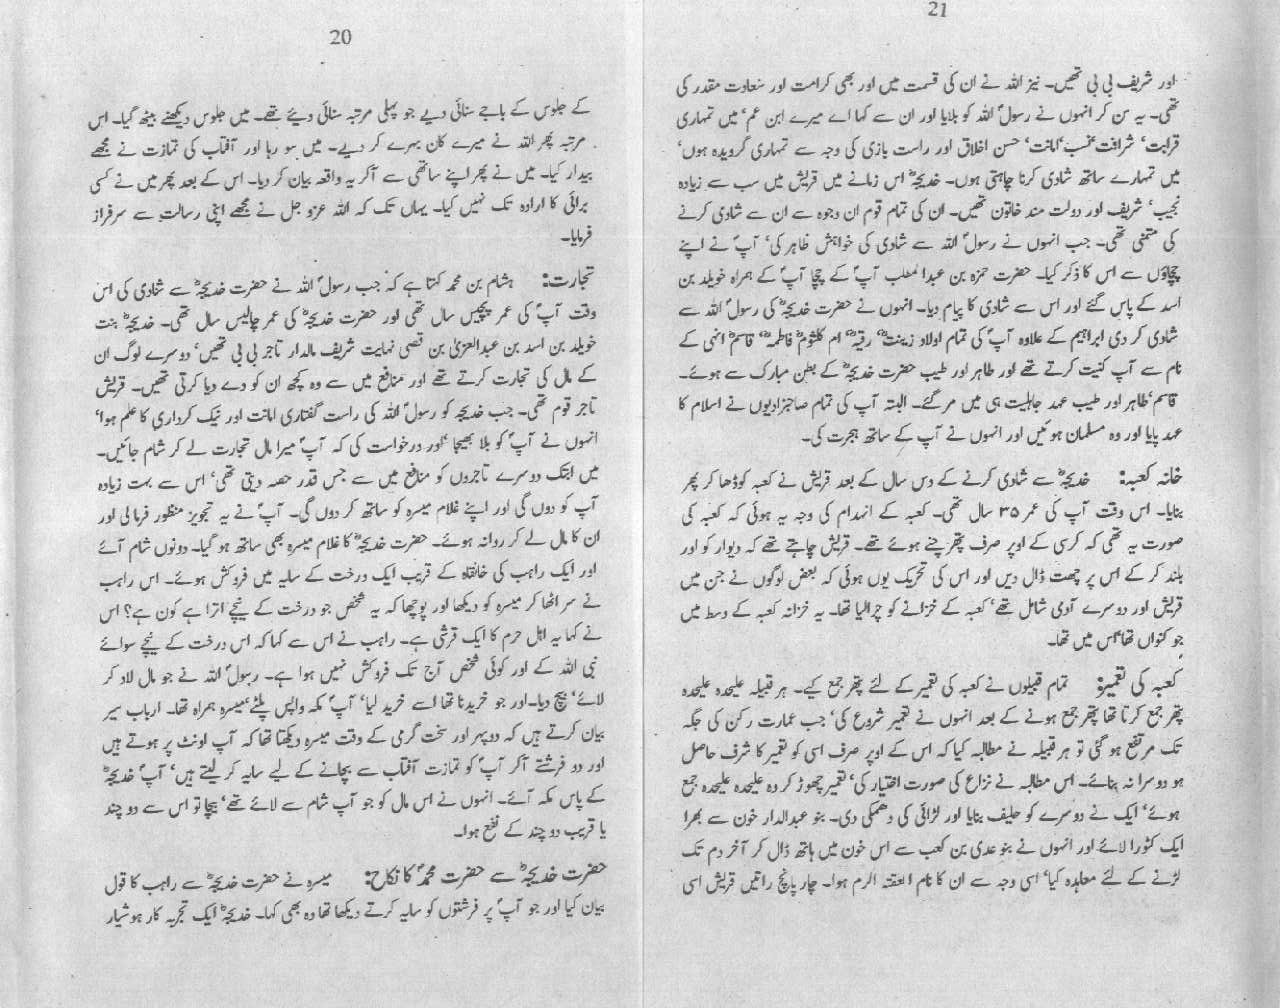 20
کے جلوس کے باجے سنائی دیے جو پہلی مرتبہ سنائی دیئے تھے۔ میں جلوس دیکھنے بیٹھ گیا۔ اس
مرتبہ پھر اللہ نے میرے کان بہرے کر دیے۔ میں سو رہا اور آفتاب کی تمازت نے مجھے
بیدار کیا۔ میں نے پھر اپنے ساتھی سے آکر یہ واقعہ بیان کر دیا۔ اس کے بعد پھر میں نے کسی
برائی کا ارادہ تک نہیں کیا۔ یہاں تک کہ اللہ عزوجل نے مجھے اپنی رسالت سے سرفراز
فرمایا۔
تجارت: ہشام بن محمد کہتا ہے کہ جب رسولؐ اللہ نے حضرت خدیجہؓ سے شادی کی اس
وقت آپؐ کی عمر پچیس سال تھی اور حضرت خدیجہؓ کی عمر چالیس سال تھی۔ خدیجہؓ بنت
خویلد بن اسد بن عبدالعزیٰ بن قصی نہایت شریف مالدار تاجر بی بی تھیں‘ دوسرے لوگ ان
کے مال کی تجارت کرتے تھے اور منافع میں سے وہ کچھ ان کو دے دیا کرتی تھیں۔ قریش
تاجر قوم تھی۔ جب خدیجہ کو رسولؐ اللہ کی راست گفتاری امانت اور نیک کرداری کا علم ہوا‘
انہوں نے آپؐ کو بلا بھیجا‘ اور درخواست کی کہ آپؐ میرا مال تجارت لے کر شام جائیں۔
میں ابتک دوسرے تاجروں کو منافع میں سے جس قدر حصہ دیتی تھی‘ اس سے بہت زیادہ
آپ کو دوں گی اور اپنے غلام میسرہ کو ساتھ کر دوں گی۔ آپؐ نے یہ تجویز منظور فرمالی اور
ان کا مال لے کر روانہ ہوئے۔ حضرت خدیجہؓ کا غلام میسرہ بھی ساتھ ہو گیا۔ دونوں شام آئے
اور ایک راہب کی خانقاہ کے قریب ایک درخت کے سایہ میں فروکش ہوئے۔ اس راہب
نے سر اٹھا کر میسرہ کو دیکھا اور پوچھا کہ یہ شخص جو درخت کے نیچے اترا ہے کون ہے؟ اس
نے کہا یہ اہل حرم کا ایک قرشی ہے۔ راہب نے اس سے کہا کہ اس درخت کے نیچے سوائے
نبی اللہ کے اور کوئی شخص آج تک فروکش نہیں ہوا ہے۔ رسولؐ اللہ نے جو مال لاد کر
لائے‘ بیچ دیا۔ اور جو خریدنا تھا اسے خرید لیا‘ آپؐ مکہ واپس پلٹے‘ میسرہ ہمراہ تھا۔ ارباب سیر
بیان کرتے ہیں کہ دوپہر اور سخت گرمی کے وقت میسرہ دیکھتا تھا کہ آپ اونٹ پر ہوتے ہیں
اور دو فرشتے آکر آپؐ کو تمازت آفتاب سے بچانے کے لیے سایہ کر لیتے ہیں‘ آپؐ خدیجہؓ
کے پاس مکہ آئے۔ انہوں نے اس مال کو جو آپ شام سے لائے تھے‘ بیچا تو اس سے دو چند
یا قریب دو چند کے نفع ہوا۔
حضرت خدیجہؓ سے حضرت محمدؐ کا نکاح: میسرہ نے حضرت خدیجہؓ سے راہب کا قول
بیان کیا اور جو آپؐ پر فرشتوں کو سایہ کرتے دیکھا تھا وہ بھی کہا۔ خدیجہؓ ایک تجربہ کار ہوشیار
21
اور شریف بی بی تھیں۔ نیز اللہ نے ان کی قسمت میں اور بھی کرامت اور سعادت مقدر کی
تھی۔ یہ سن کر انہوں نے رسولؐ اللہ کو بلایا اور ان سے کہا اے میرے ابن عم‘ میں تمہاری
قرابت‘ شرافت نسب‘ امانت‘ حسن اخلاق اور راست بازی کی وجہ سے تمہاری گرویدہ ہوں‘
میں تمہارے ساتھ شادی کرنا چاہتی ہوں۔ خدیجہؓ اس زمانے میں قریش میں سب سے زیادہ
نجیب‘ شریف اور دولت مند خاتون تھیں۔ ان کی تمام قوم ان وجوہ سے ان سے شادی کرنے
کی متمنی تھی۔ جب انہوں نے رسولؐ اللہ سے شادی کی خواہش ظاہر کی‘ آپؐ نے اپنے
چچاؤں سے اس کا ذکر کیا۔ حضرت حمزہ بن عبدالمطلب آپؐ کے چچا آپؐ کے ہمراہ خویلد بن
اسد کے پاس گئے اور اس سے شادی کا پیام دیا۔ انہوں نے حضرت خدیجہؓ کی رسولؐ اللہ سے
شادی کر دی ابراہیم کے علاوہ آپؐ کی تمام اولاد زینبؓ‘ رقیہؓ‘ ام کلثومؓ فاطمہؓ‘ قاسمؓ انہی کے
نام سے آپ کنیت کرتے تھے اور طاہر اور طیب حضرت خدیجہؓ کے بطن مبارک سے ہوئے۔
قاسم‘ طاہر اور طیب عہد جاہلیت ہی میں مر گئے۔ البتہ آپ کی تمام صاحبزادیوں نے اسلام کا
عہد پایا اور وہ مسلمان ہوئیں اور انہوں نے آپ کے ساتھ ہجرت کی۔
خانہ کعبہ: خدیجہؓ سے شادی کرنے کے دس سال کے بعد قریش نے کعبہ کو ڈھا کر پھر
بنایا۔ اس وقت آپ کی عمر ۳۵ سال تھی۔ کعبہ کے انہدام کی وجہ یہ ہوئی کہ کعبہ کی
صورت یہ تھی کہ کرسی کے اوپر صرف پتھر چنے ہوئے تھے۔ قریش چاہتے تھے کہ دیوار کو اور
بلند کر کے اس پر چھت ڈال دیں اور اس کی تحریک یوں ہوئی کہ بعض لوگوں نے جن میں
قریش اور دوسرے آدمی شامل تھے‘ کعبہ کے خزانے کو چرا لیا تھا۔ یہ خزانہ کعبہ کے وسط میں
جو کنواں تھا‘ اس میں تھا۔
کعبہ کی تعمیر: تمام قبیلوں نے کعبہ کی تعمیر کے لئے پتھر جمع کیے۔ ہر قبیلہ علیحدہ علیحدہ
پتھر جمع کرتا تھا پتھر جمع ہونے کے بعد انہوں نے تعمیر شروع کی‘ جب عمارت رکن کی جگہ
تک مرتفع ہو گئی تو ہر قبیلہ نے مطالبہ کیا کہ اس کے اوپر صرف اسی کو تعمیر کا شرف حاصل
ہو دوسرا نہ بنائے۔ اس مطالبہ نے نزاع کی صورت اختیار کی‘ تعمیر چھوڑ کر وہ علیحدہ علیحدہ جمع
ہوئے‘ ایک نے دوسرے کو حلیف بنایا اور لڑائی کی دھمکی دی۔ بنو عبدالدار خون سے بھرا
ایک کٹورا لائے اور انہوں نے بنو عدی بن کعب سے اس خون میں ہاتھ ڈال کر آخر دم تک
لڑنے کے لئے معاہدہ کیا‘ اسی وجہ سے ان کا نام لعقتہ الدم ہوا۔ چار پانچ راتیں قریش اسی